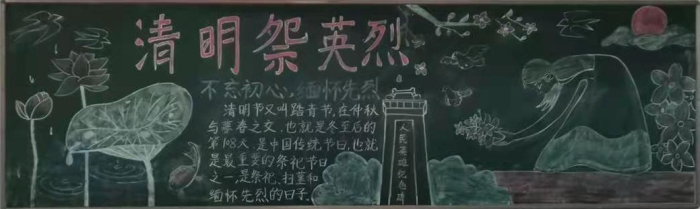 清明祭英烈
不忘初心,缅怀先烈
清明节又叫踏青节,在仲秋
与暮春之交,也就是冬至后的
第108天,是中国传统节日,也就
是最重要的祭祀节日
之一,是祭祀、扫墓和
缅怀先烈的日子.
人民英雄纪念碑